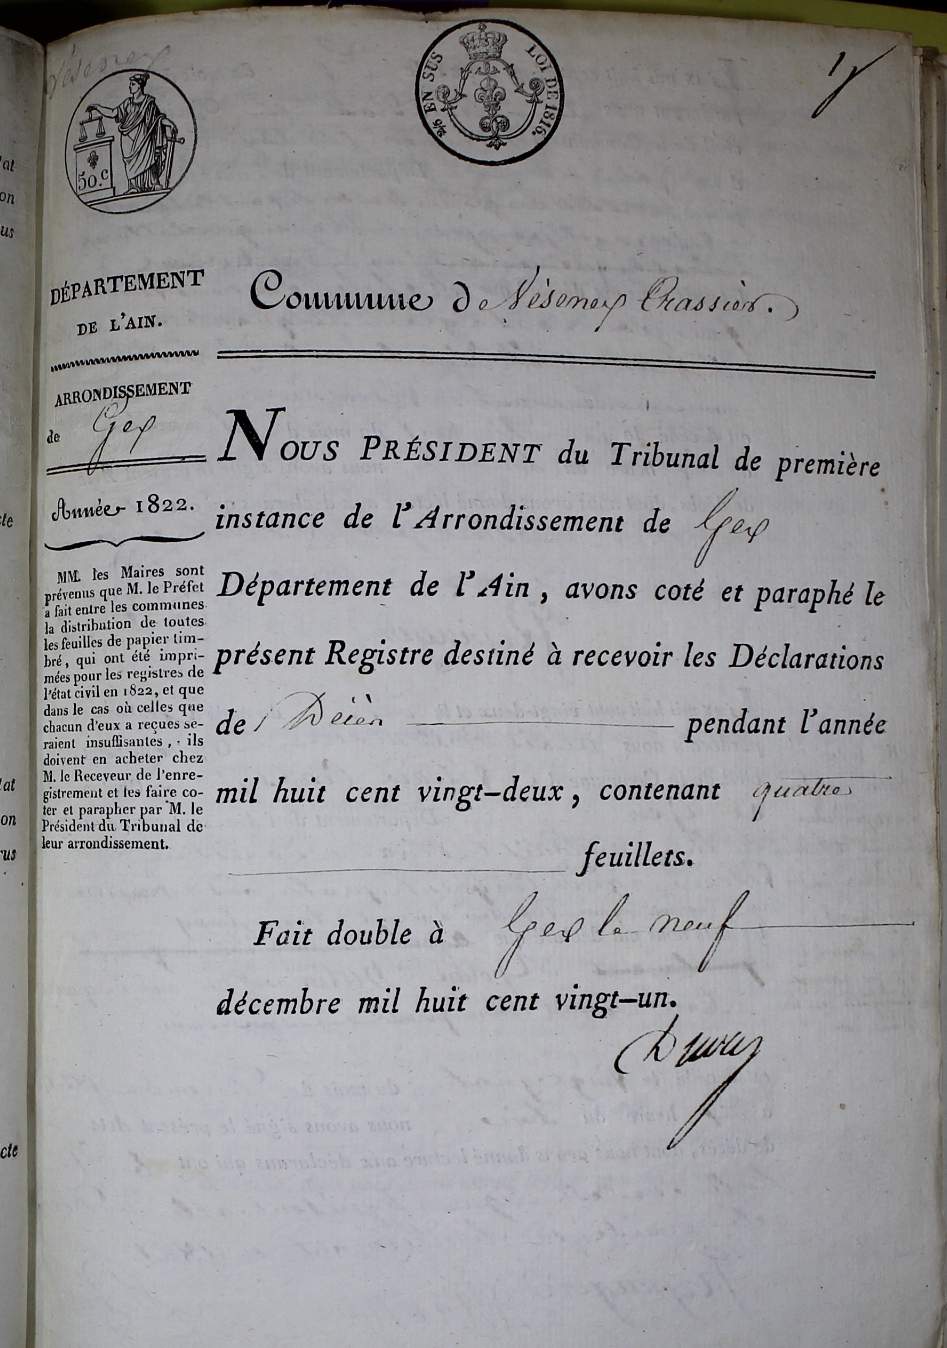 Vésenex
50.c
2/5 EN SUS LOI DE 1816.
1
DÉPARTEMENT
DE L'AIN.
ARRONDISSEMENT
de Gex
Année 1822.
MM. les Maires sont
prévenus que M. le Préfet
a fait entre les communes
la distribution de toutes
les feuilles de papier tim-
bré, qui ont été impri-
mées pour les registres de
l'état civil en 1822, et que
dans le cas où celles que
chacun d'eux a reçues se-
raient insuffisantes, ils
doivent en acheter chez
M. le Receveur de l'enre-
gistrement et les faire co-
ter et parapher par M. le
Président du Tribunal de
leur arrondissement.
Commune de Vésenex Crassier.
NOUS PRÉSIDENT du Tribunal de première
instance de l'Arrondissement de Gex
Département de l'Ain, avons coté et paraphé le
présent Registre destiné à recevoir les Déclarations
de Décès pendant l'année
mil huit cent vingt-deux, contenant quatre
feuillets.
Fait double à Gex le neuf
décembre mil huit cent vingt-un.